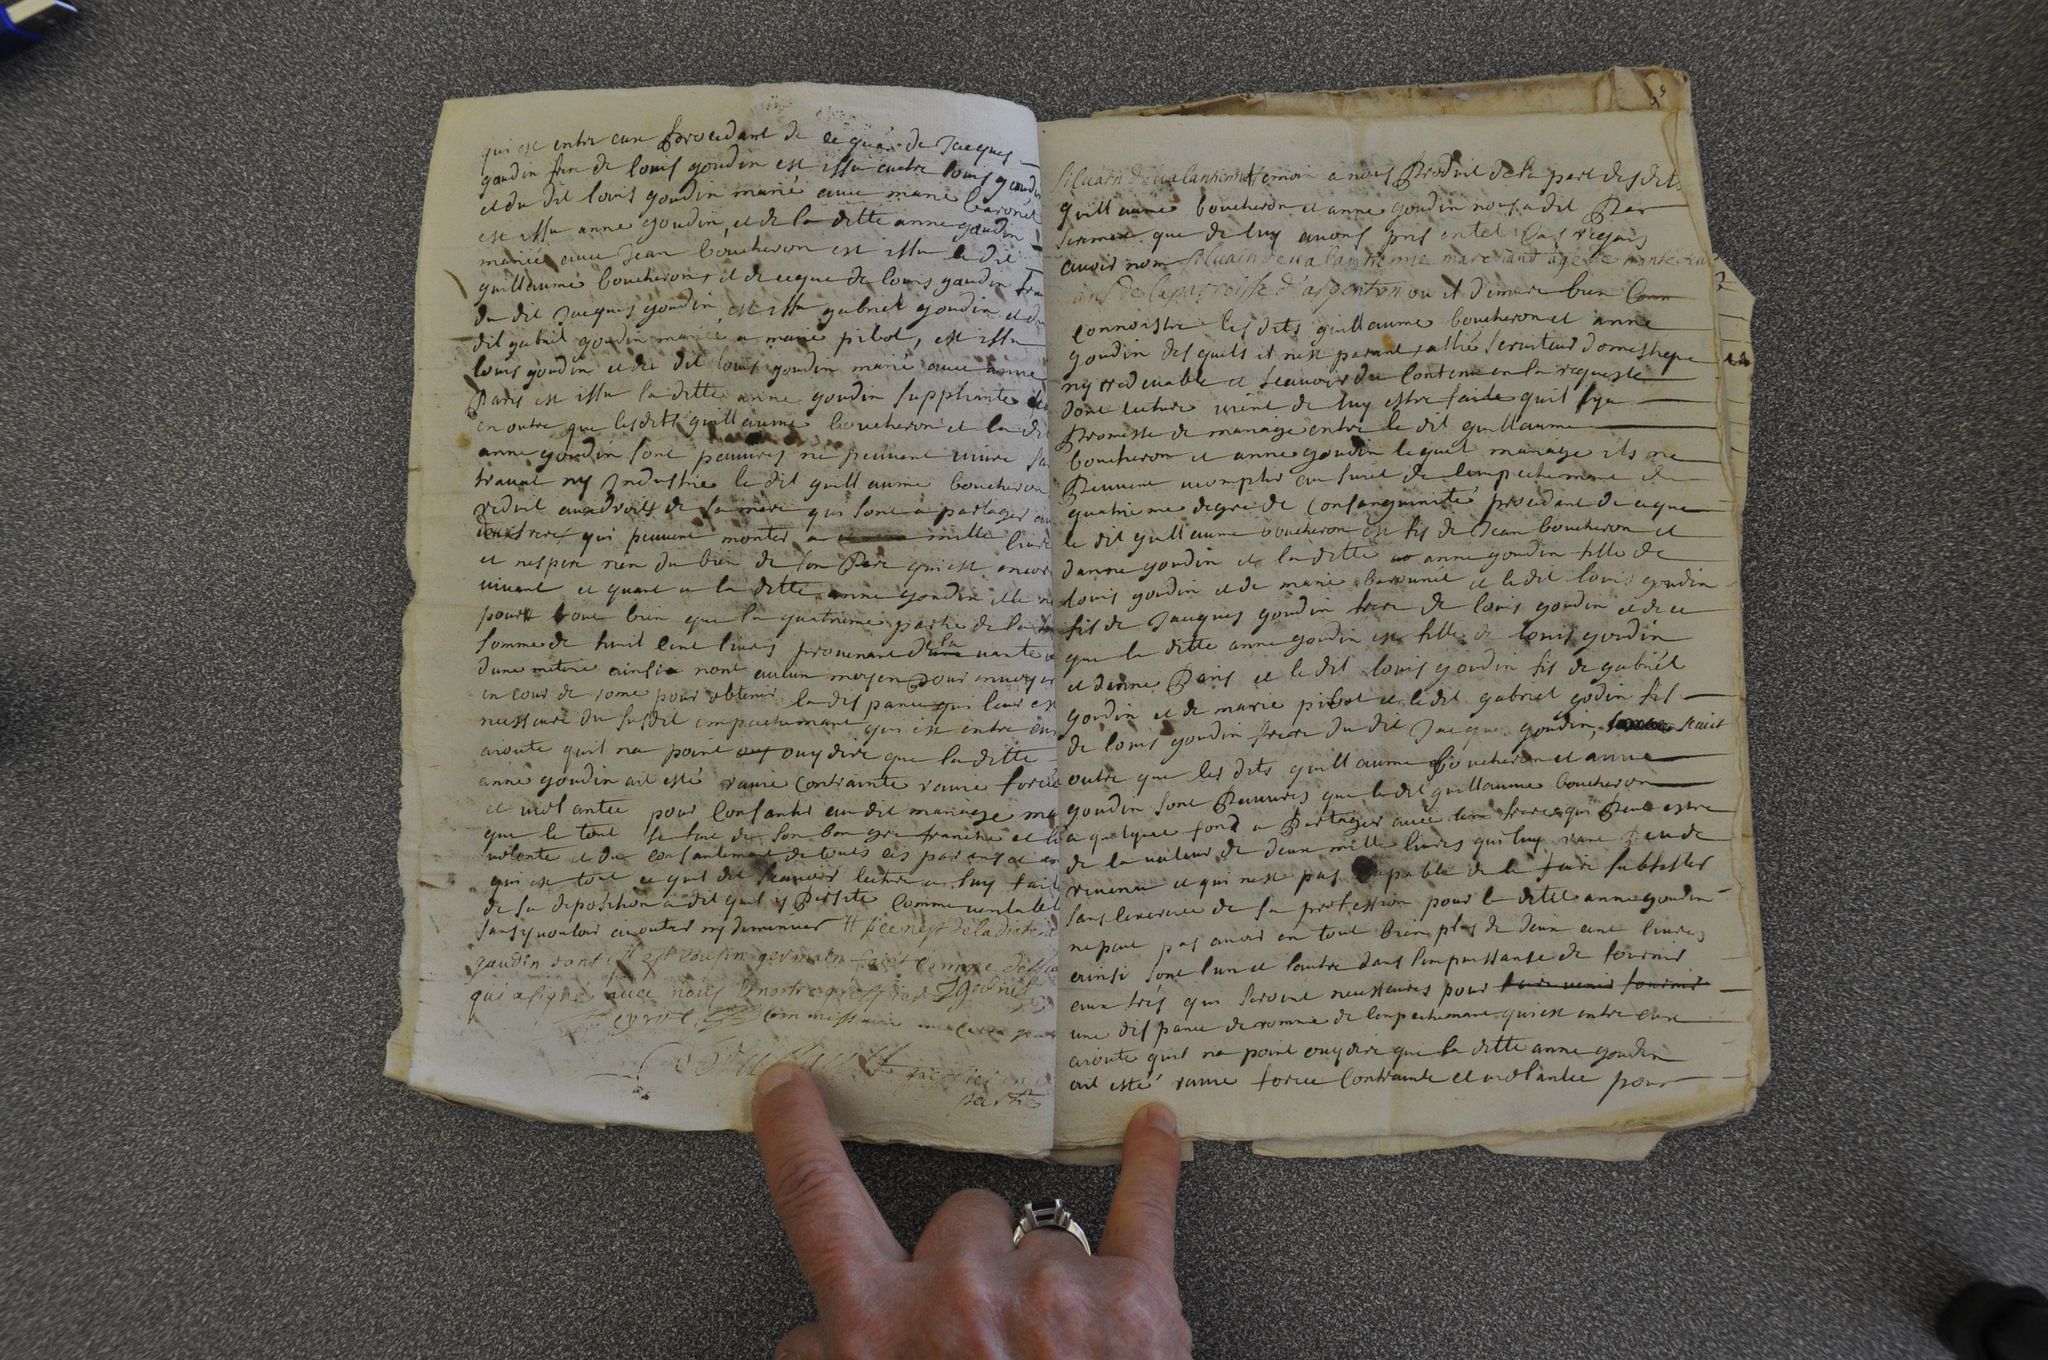 qui est entre eux procedant de ce que de Jacques
goudin frere de louis goudin est issu autre louis goudin
et du dit louis goudin marié avec marie baronet
est issu anne goudin, et de la ditte anne goudin
mariée avec Jean boucheron est issu le dit
guillaume boucheron, et de ceque de louis goudin frere
du dit Jacques goudin, est issu gabriel goudin et du
dit gabriel goudin marié a marie pibot, est issu
louis goudin et du dit louis goudin marié avec anne
Paris est issu la ditte anne goudin suppliante
en outre que lesdits guillaume boucheron et la di
anne goudin sont pauvres ne peuvent vivre
travail ny Industrie le dit guillaume boucheron
reduit aux droits de sa mere qui sont a partager
qui peuvent monter a mille livre
et nespere rien du bien de son Pere qui est encor
vivant et quant a la ditte anne goudin elle na
pour tout bien que la quatrieme partie de la
somme de huit cent livres provenant de la vante
dune metairie ainsi nont aucun moyen pour envoyer
en cour de rome pour obtenir la dispance qui leur est
necessaire du susdit empechemant qui est entre eux
aioute quil na point ouy dire que la ditte
anne goudin ait esté ravie contrainte ravie forcée
et violantée pour consantir au dit mariage
que le tout se fait de son bon gré franche et
volonte et du consantement de touts ces parans et
qui est tout ce quil dit scauoir lecture a luy fait
de sa deposition a dit quil y persiste comme veritable
sans y vouloir aiouter ny diminuer # si ce nest de la ditte
goudin dont il est cousin germain fait comme dessus
qui a signé avec nous
commissaire
partie
Silvain devalantienne temoin a nous Produit de la part desdits
guillaume boucheron et anne goudin nous a dit Par
serment que de luy avons pris en tel cas requis
avoir nom Silvain devalantienne marchand agé de trante
ans de la parroisse d'argenton ou il dimure bien
connoistre les dits guillaume boucheron et anne
goudin desquels il nest parant, allié serviteur domestique
ny redevable et scauoir du contenu en la requeste
dont lecture vient de luy estre faite quil y a
promesse de mariage entre le dit guillaume
boucheron et anne goudin lequel mariage ils ne
peuvent acomplir au suiet de lempechement du
quatrieme degré de consanguinité procedant de ceque
le dit guillaume boucheron est fis de Jean boucheron et
danne goudin et la ditte anne goudin fille de
louis goudin et de marie baronnet et le dit louis goudin
fis de Jacques goudin frere de louis goudin et de ce
que la ditte anne goudin est fille de louis goudin
et danne Paris et le dit louis goudin fis de gabriel
goudin et de marie pibot et le dit gabriel godin fis
de louis goudin frere du dit Jacques goudin, scait
outre que les dits guillaume boucheron et anne
goudin sont Pauvres que le dit guillaume boucheron
a quelque fond a Partager avec frere qui Peut estre
de la valeur de deux mille livres qui luy rant peu de
revenu et qui nest pas capable de le faire subsister
sans lexercice de sa profession pour la ditte anne goudin
ne peut pas avoir en tout bien plus de deux cent livres
ainsi sont lun et lautre dans limpuissanse de fournir
aux frés qui seront necessaires pour faire venir fournir
une dispance de romme de lempechemant qui est entre eux
aioute quil na point ouy dire que la ditte anne goudin
ait esté ravie forcée contrainte et violantée pour